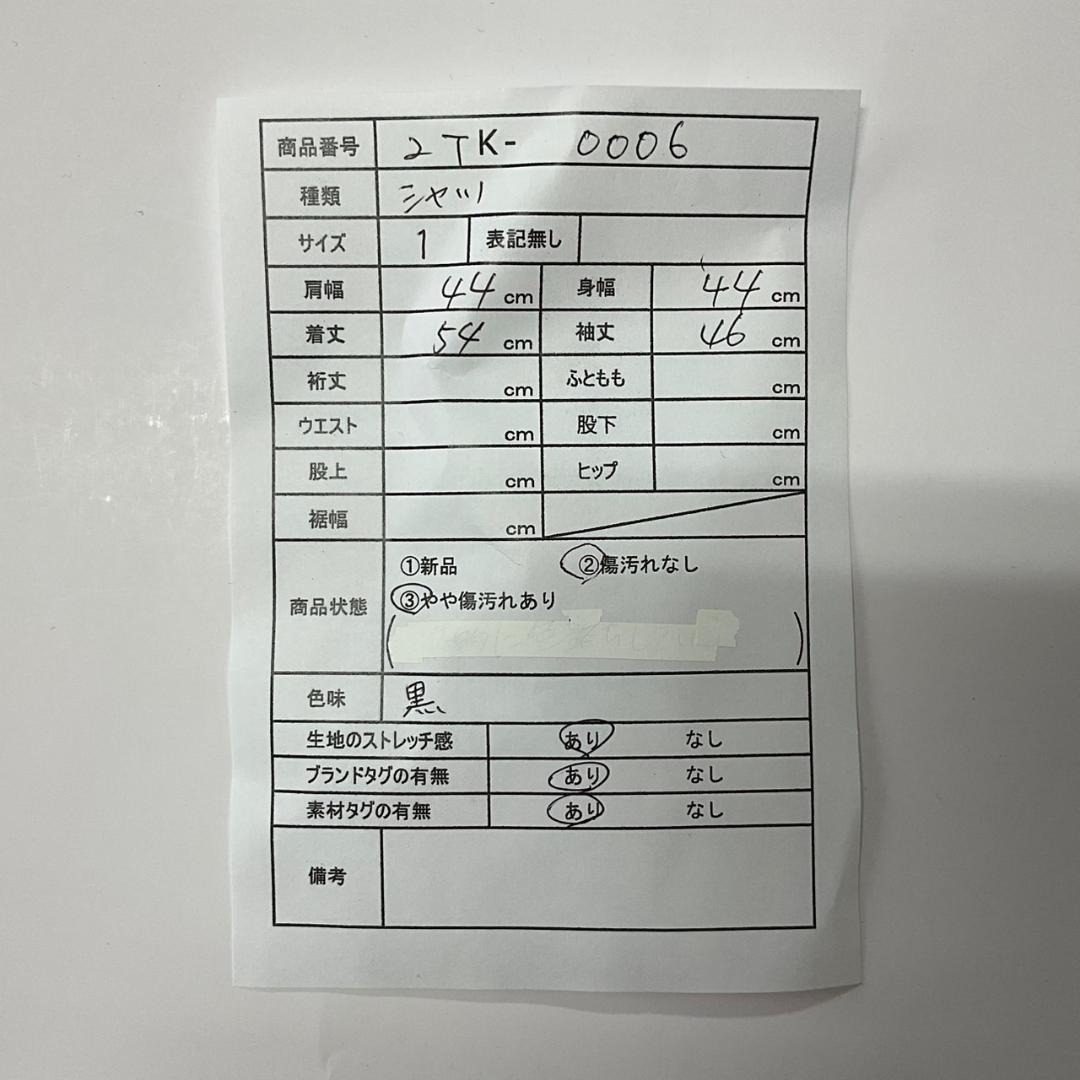 商品番号 2TK- 0006
種類 シャツ
サイズ 1 表記無し
肩幅 44 cm 身幅 44 cm
着丈 54 cm 袖丈 46 cm
裄丈 cm ふともも cm
ウエスト cm 股下 cm
股上 cm ヒップ cm
裾幅 cm
①新品 ②傷汚れなし
商品状態 ③やや傷汚れあり
( )
色味 黒
生地のストレッチ感 あり なし
ブランドタグの有無 あり なし
素材タグの有無 あり なし
備考